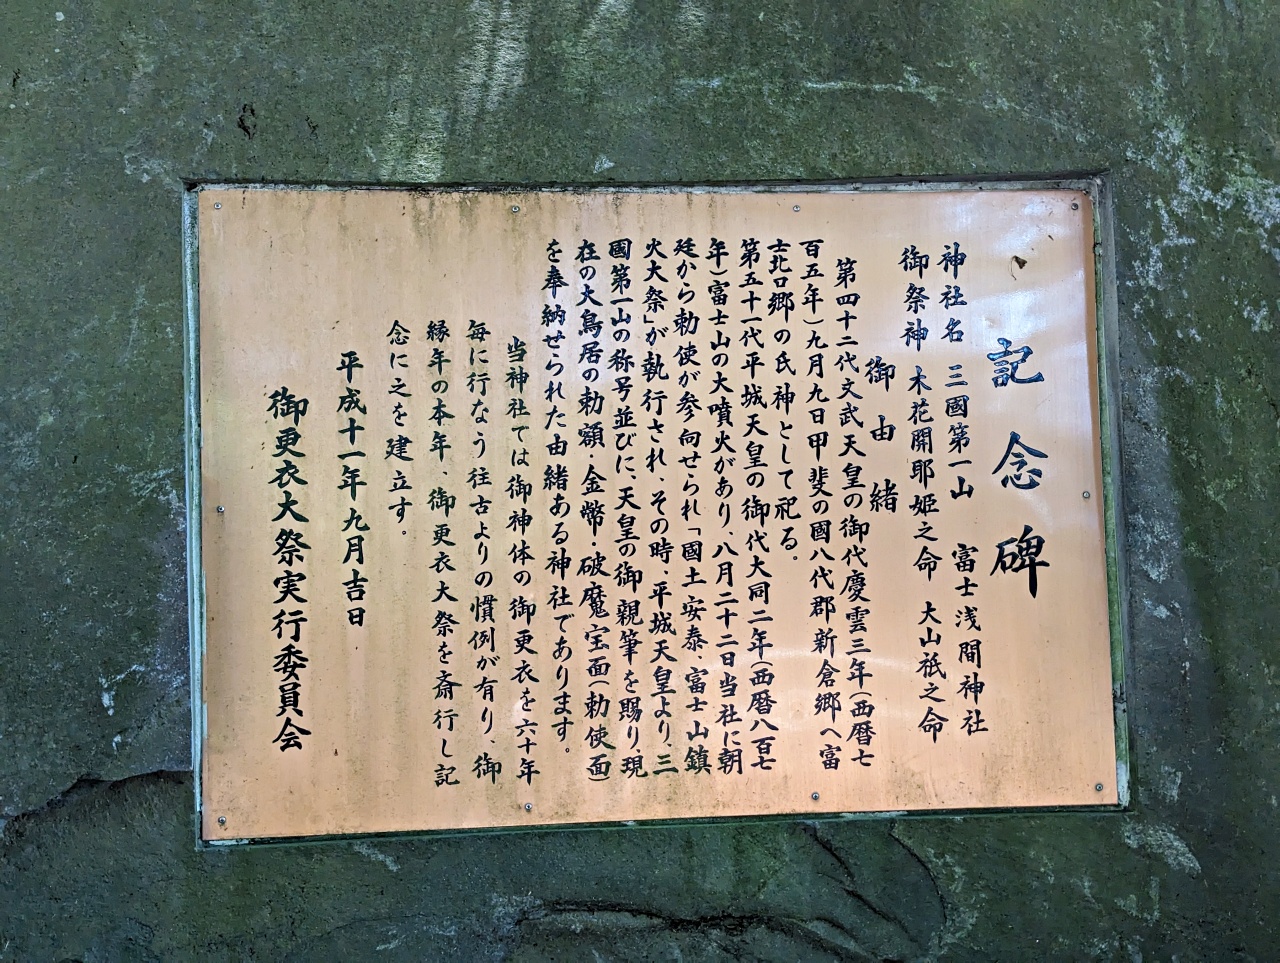 記念碑
神社名 三國第一山 富士浅間神社
御祭神 木花開耶姫之命 大山祇之命
御由緒
第四十二代文武天皇の御代慶雲三年(西暦七
百五年)九月九日甲斐の國八代郡新倉郷へ富
士北口郷の氏神として祀る。
第五十一代平城天皇の御代大同二年(西暦八百七
年)富士山の大噴火があり、八月二十二日当社に朝
廷から勅使が参向せられ「國土安泰 富士山鎮
火大祭」が執行され、その時・平城天皇より、三
國第一山の称号並びに、天皇の御親筆を賜り、現
在の大鳥居の勅額・金幣・破魔宝面(勅使面)
を奉納せられた由緒ある神社であります。
当神社では御神体の御更衣を六十年
毎に行なう往古よりの慣例が有り、御
縁年の本年、御更衣大祭を斎行し記
念に之を建立す。
平成十一年九月吉日
御更衣大祭実行委員会